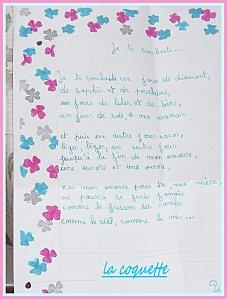 Je te souhaite...
Je te souhaite un jour de diamant,
de saphir et de porcelaine,
un jour de lilas et de laine,
un jour de soie, ô ma maman
et puis un autre jour encor,
léger, léger, un autre jour
jusqu'à la fin de mon amour,
une aurore et une aurore,
car mon amour pour toi, ma mère,
ne pourra se finir jamais
comme le frisson des ramées
comme le ciel, comme la mer...
la coquette